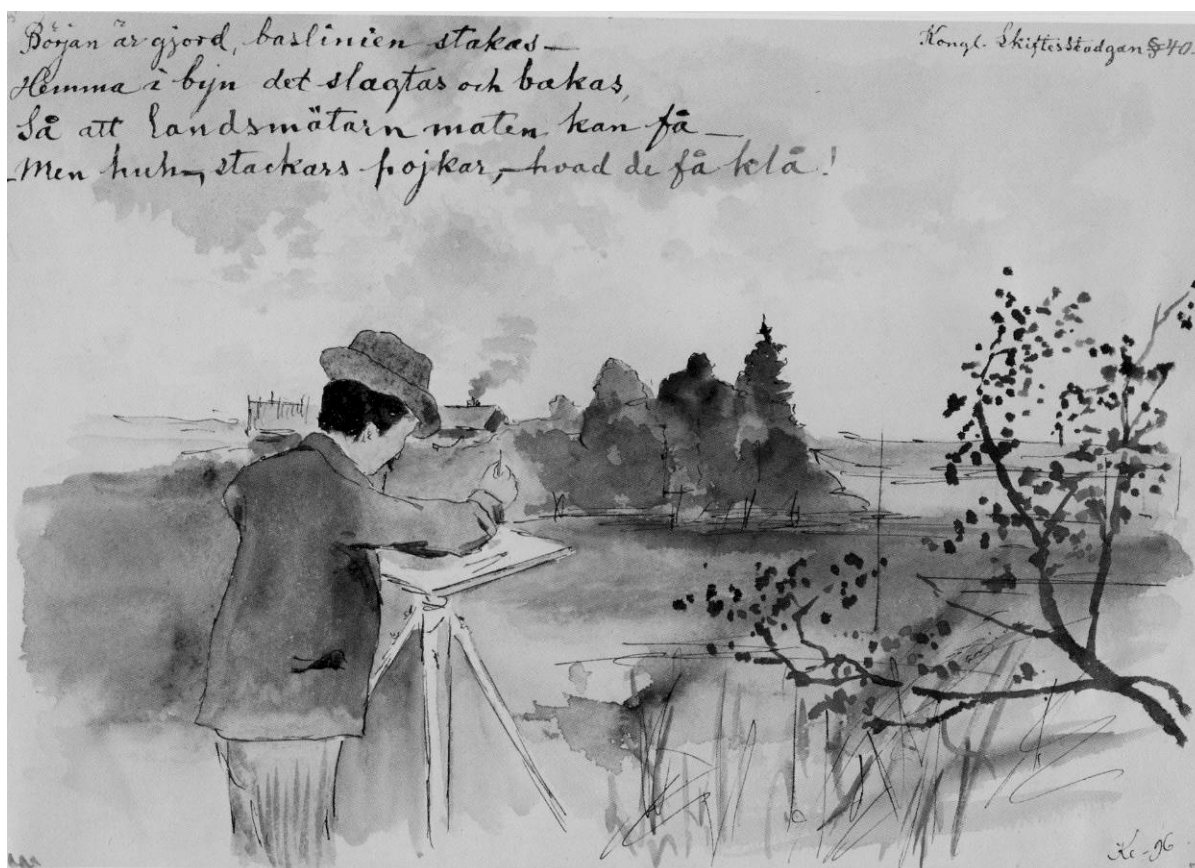 Början är gjord, baslinien stakas—
Hemma i byn det slagtas och bakas,
Så att Landsmätarn maten kan få—
Men huh—, stackars pojkar,—hvad de få klå!
Kongl. Skiftesstadgan § 40.
Ke -96